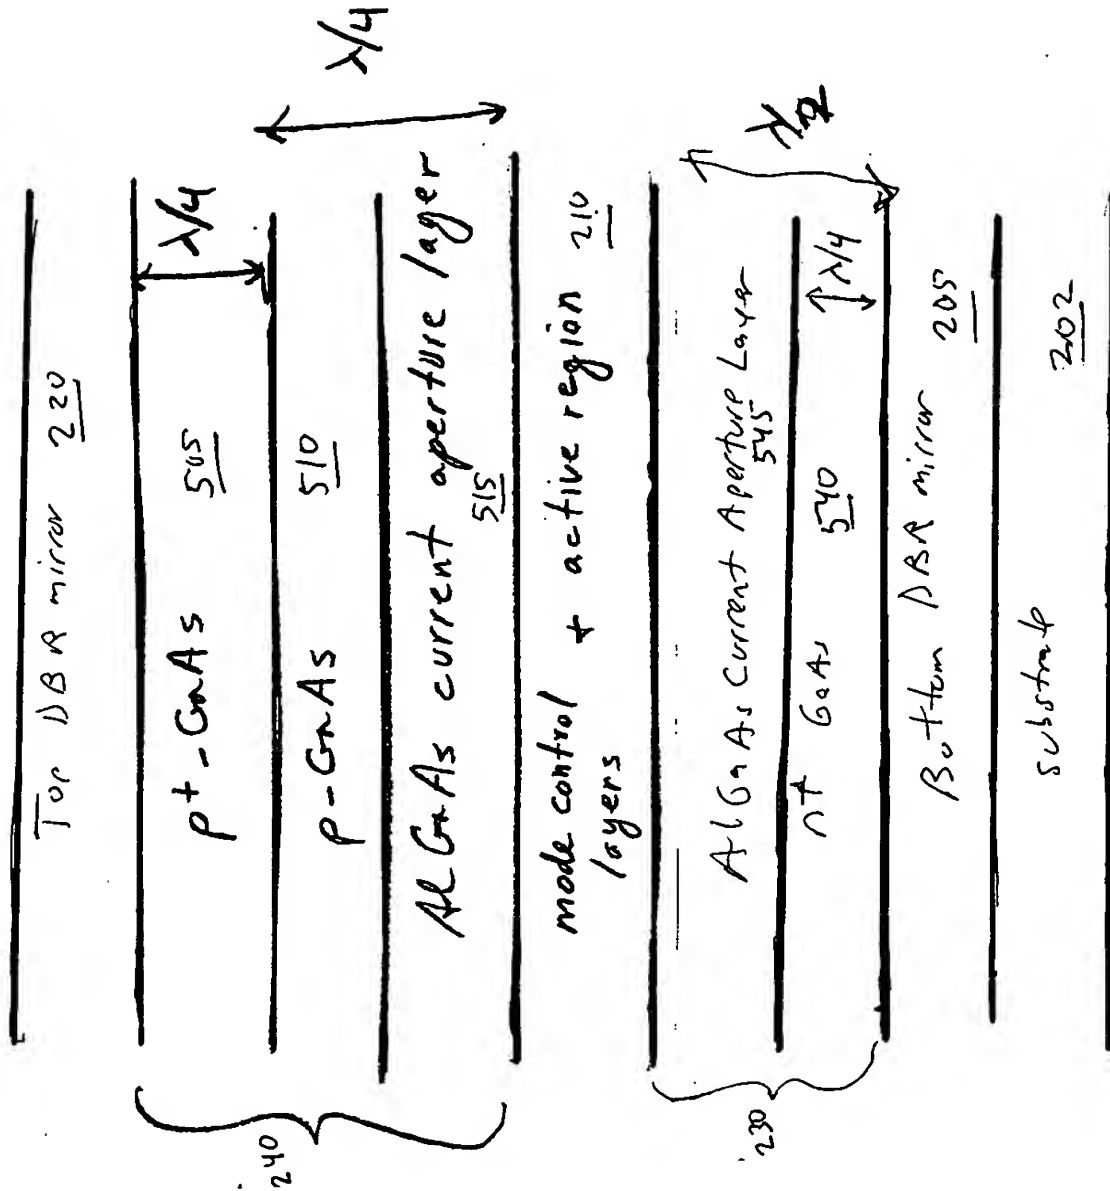 Top DBR mirror 220
λ/4
p+-GaAs 505
λ/4
p-GaAs 510
AlGaAs current aperture layer
515
mode control + active region 210
layers
AlGaAs Current Aperture Layer
545
n+ GaAs 540
λ/4
Bottom DBR mirror 205
substrate 202
240
230